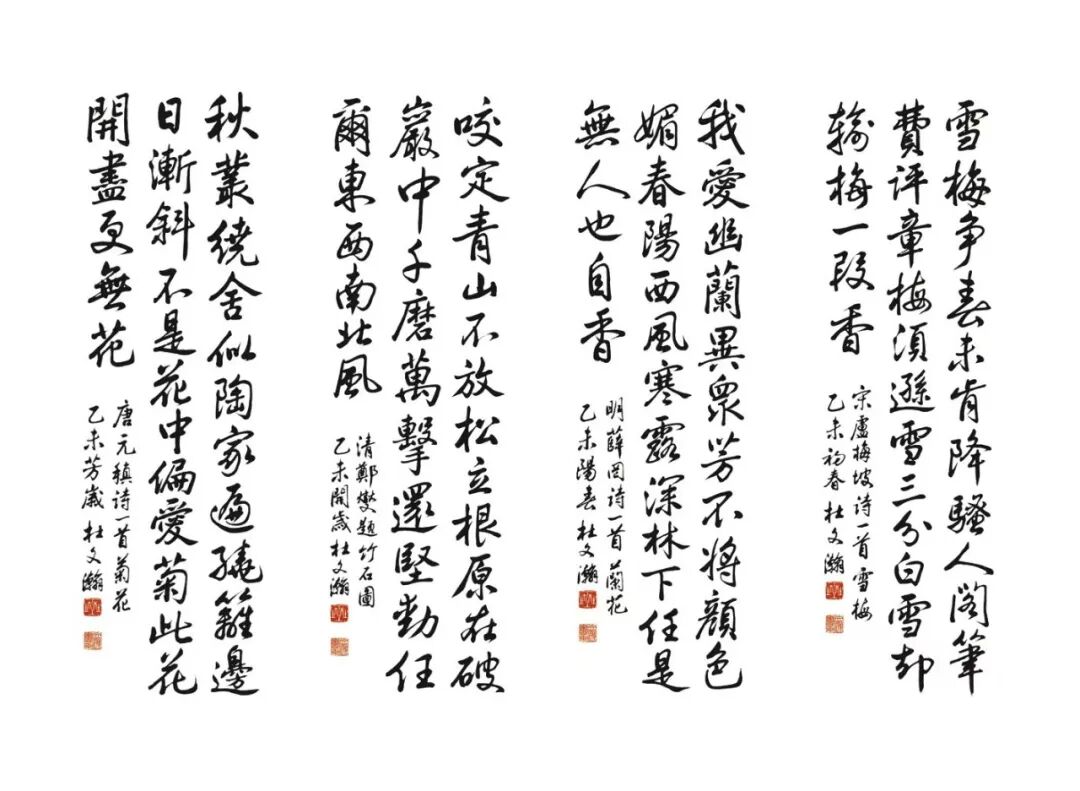 雪梅争春未肯降騷人閣筆
費評章梅須遜雪三分白雪却
輸梅一段香
宋盧梅坡詩一首 雪梅
乙未初春 杜文瀚
我愛幽蘭異衆芳不將顏色
媚春陽西風寒露深林下任是
無人也自香
明薛岡詩一首 蘭花
乙未陽春 杜文瀚
咬定青山不放松立根原在破
巖中千磨萬擊還堅勁任
爾東西南北風
清鄭燮題竹石圖
乙未開歲 杜文瀚
秋叢繞舍似陶家遍繞籬邊
日漸斜不是花中偏愛菊此花
開盡更無花
唐元稹詩一首菊花
乙未芳歲 杜文瀚